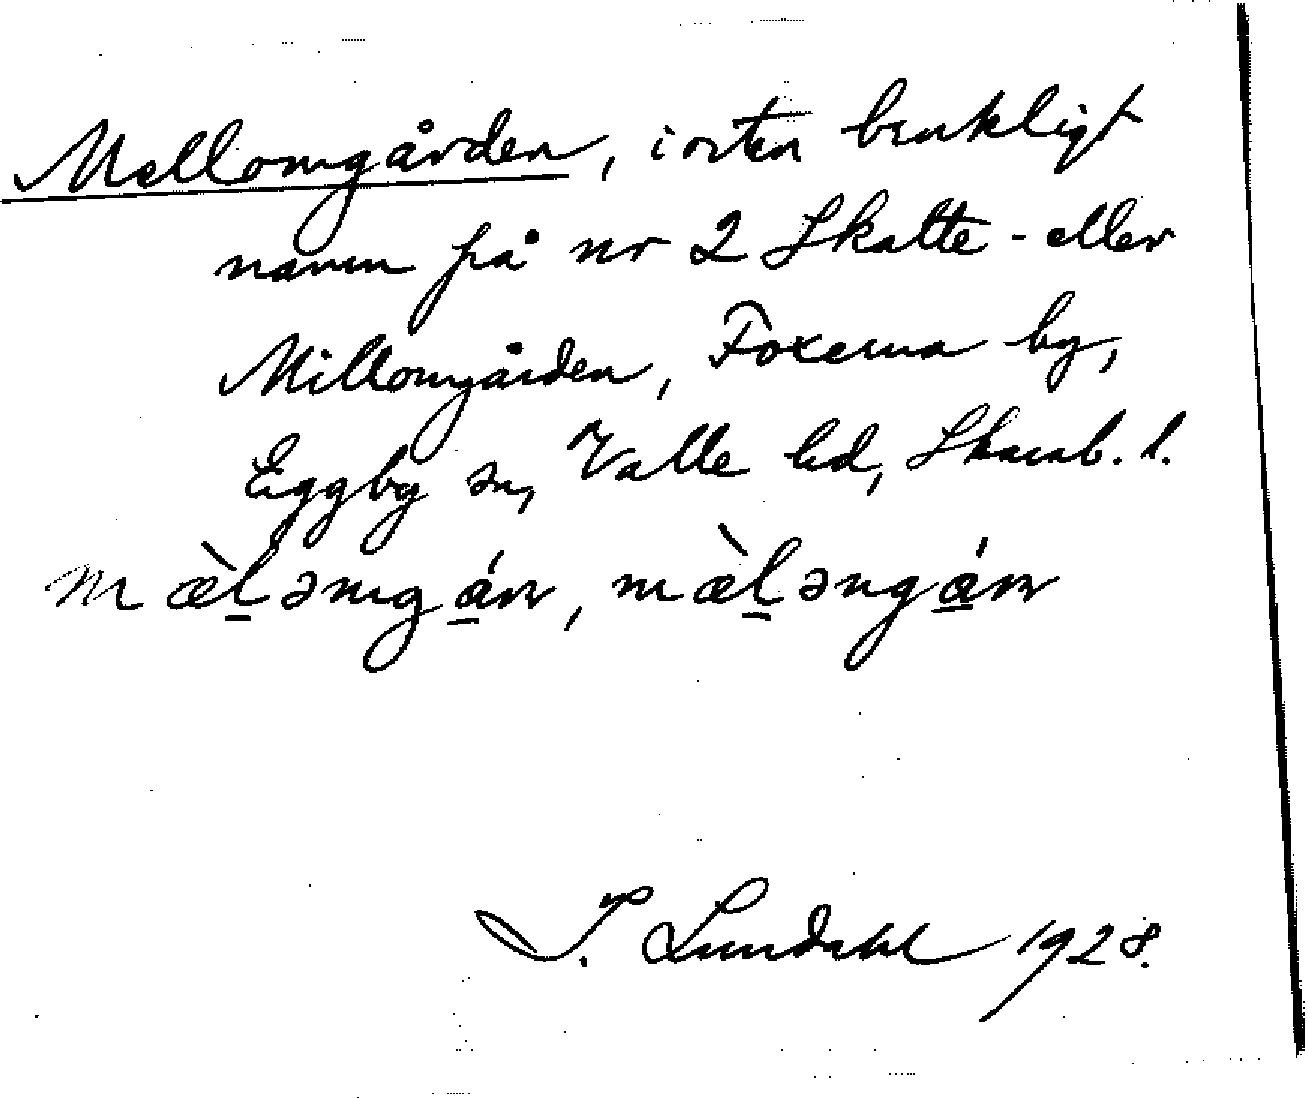 Mellomgården, i orten brukligt
namn på nr 2 Skatte- eller
Millomgården, Foxerna by,
Eggby sn, Valle hd, Skarab. l.
mæ̀l̠əmgá̠ɳ, mæ̀l̠əngá̠ɳ
I. Lundahl 1928.